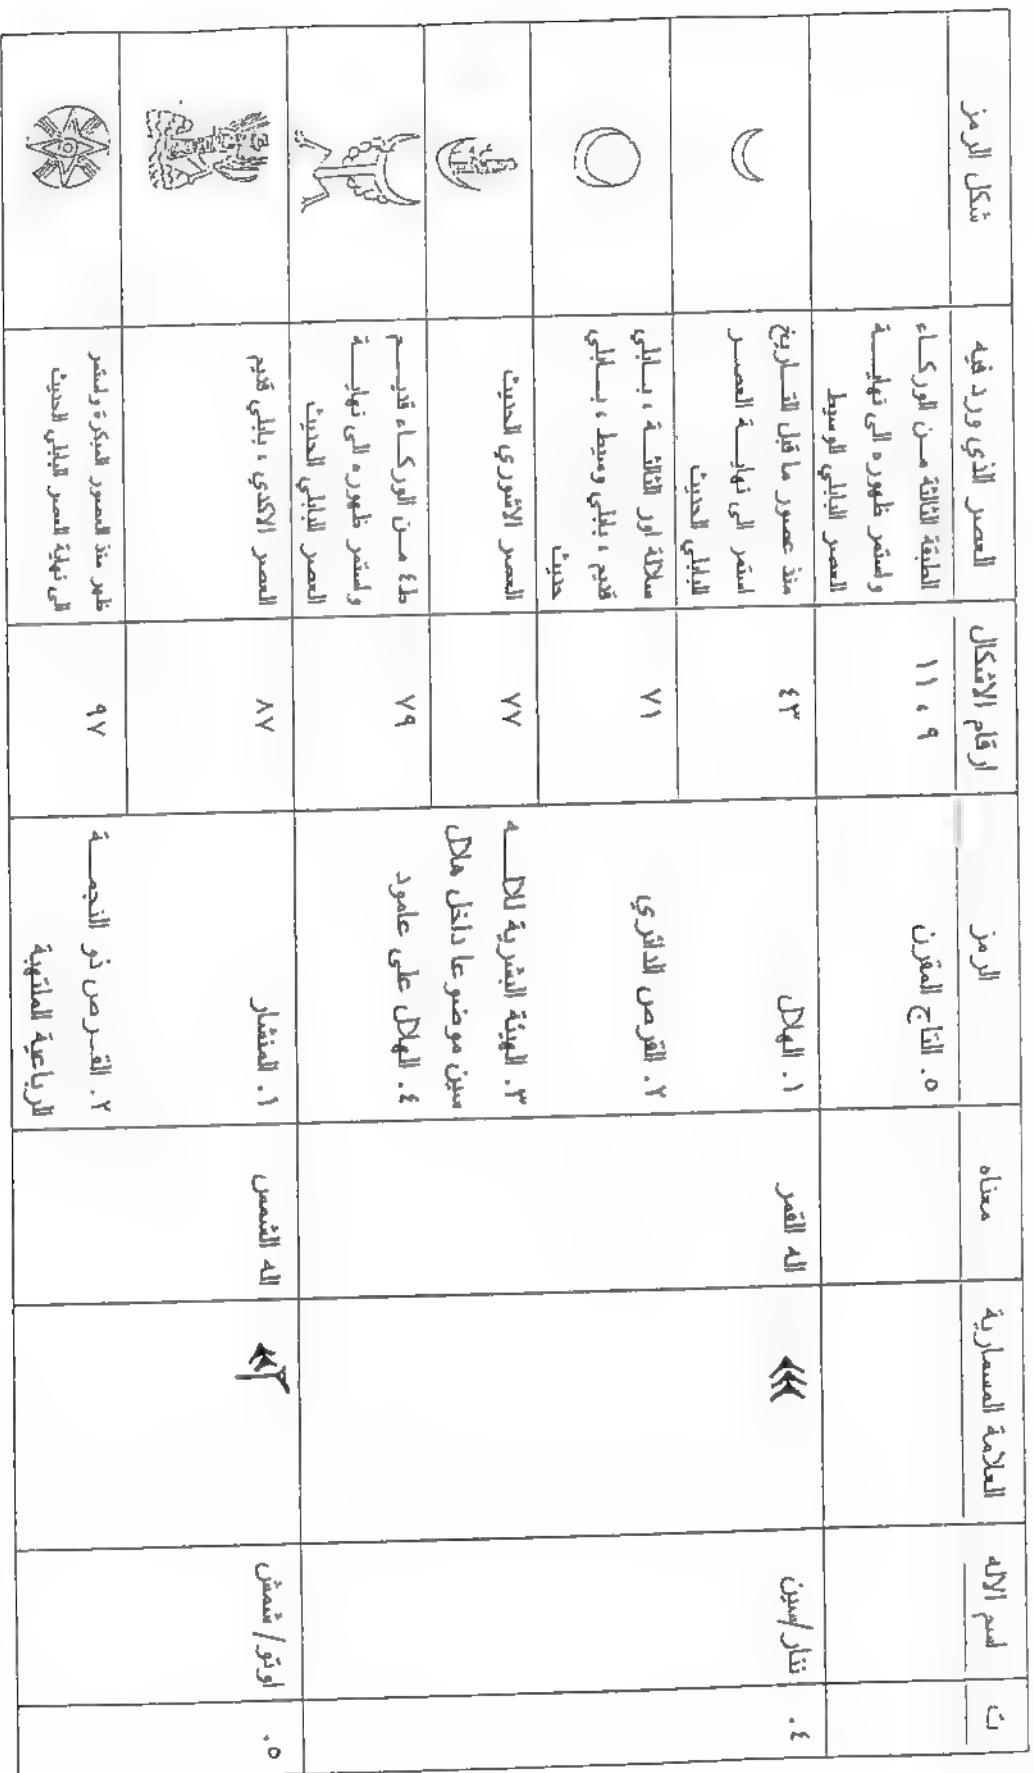 ت
اسم الاله
العلامة المسمارية
معناه
الرمز
ارقام الاشكال
العصر الذي ورد فيه
شكل الرمز
٥. التاج المقرن
٩ ، ١١
الطبقة الثالثة مـن الوركـاء
واستمر ظهوره الى نهايـــة
العصر البابلي الوسيط
٤.
ننار/سين
اله القمر
١. الهلال
٤٣
منذ عصور ما قبل التـاريخ
استمر الى نهايـة العصـر
البابلي الحديث
٢. القرص الدائري
٧١
سلالة اور الثالثـة ، بـابلي
قديم ، بابلي وسيط ، بـابلي
حديث
٣. الهيئة البشرية للالـــه
سين موضوعا داخل هلال
٧٧
العصر الاشوري الحديث
٤. الهلال على عامود
٧٩
ط٤ مـن الوركـاء قديـــم
واستمر ظهوره الى نهايـــة
العصر البابلي الحديث
٥.
اوتو/ شمش
اله الشمس
١. المنشار
٨٧
العصر الاكدي ، بابلي قديم
٢. القـرص ذو النجمـــة
الرباعية الملتهبة
٩٧
ظهر منذ العصور المبكرة واستمر
الى نهاية العصر البابلي الحديث